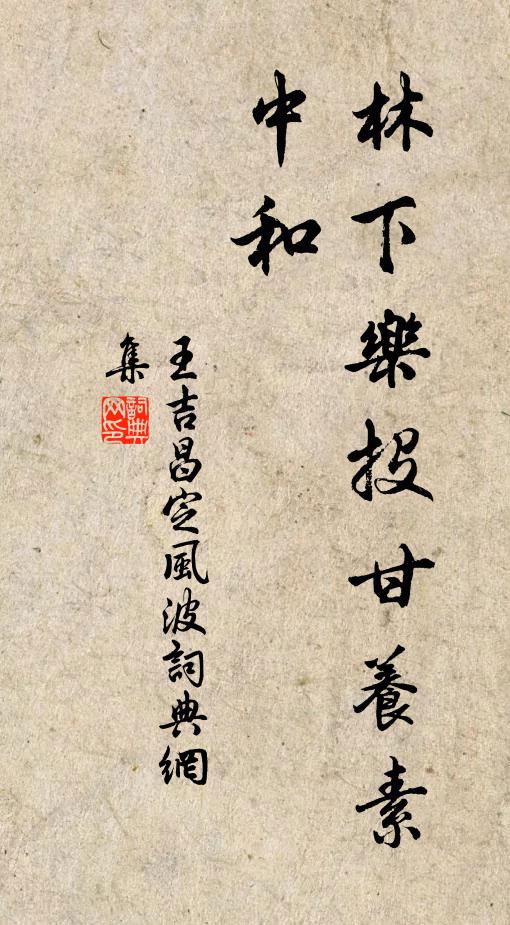 林下樂投甘養素
中和
王吉昌定風波詞典網
集
詞典
网印